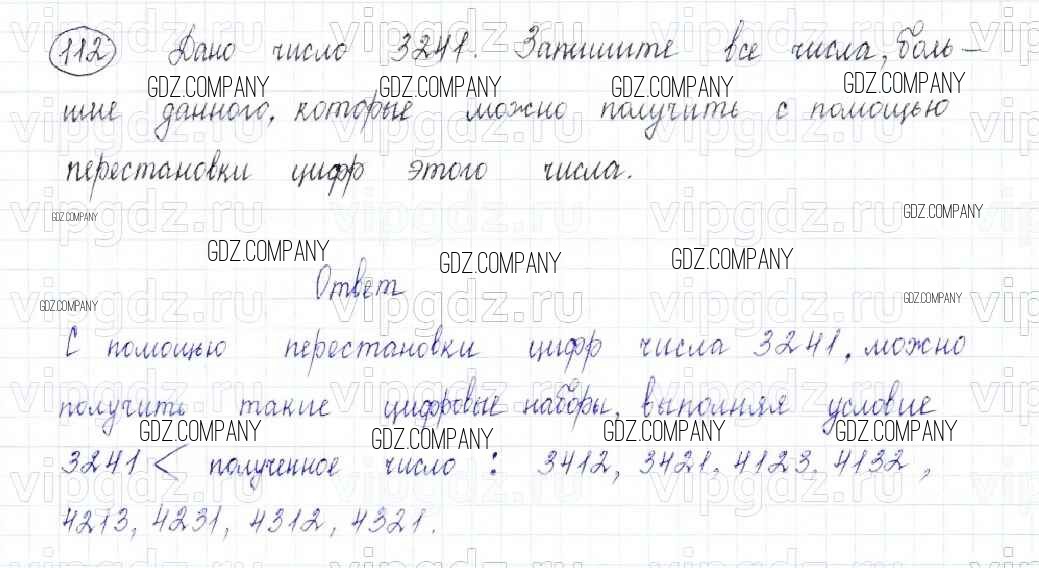 112 Дано число 3241. Запишите все числа, боль-
GDZ.COMPANY GDZ.COMPANY GDZ.COMPANY GDZ.COMPANY
шие данного, которые можно получить с помощью
перестановки цифр этого числа.
vipgdz.ru vipgdz.ru vipgdz.ru
GDZ.COMPANY GDZ.COMPANY
GDZ.COMPANY GDZ.COMPANY GDZ.COMPANY
Ответ
vipgdz.ru vipgdz.ru
GDZ.COMPANY GDZ.COMPANY
С помощью перестановки цифр числа 3241, можно
vipgdz.ru vipgdz.ru vipgdz.ru
получить такие цифровые наборы, выполняя условие
GDZ.COMPANY GDZ.COMPANY GDZ.COMPANY GDZ.COMPANY
3241 < полученное число : 3412, 3421, 4123, 4132,
4213, 4231, 4312, 4321.